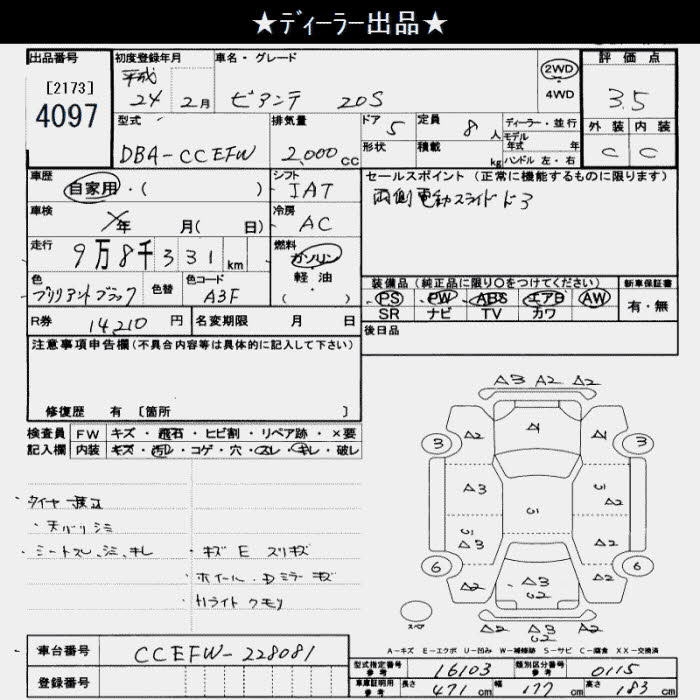 ★ディーラー出品★
出品番号
[2173]
4097
初度登録年月
平成
24 2月
車名・グレード
ビアンテ 20S
2WD
4WD
評価点
3.5
外装 内装
C C
型式
DBA-CCEFW
排気量
2,000cc
ドア 5
形状
定員 8人
積載 kg
ディーラー・並行
モデル
年式 年
ハンドル 左・右
車歴
自家用・( )
シフト
IAT
セールスポイント (正常に機能するものに限ります)
両側電動スライドドア
車検
年 月( 日)
冷房
AC
走行
9万8千331km
燃料
ガソリン
軽・油
( )
色
ブリリアントブラック
色替
色コード
A3F
装備品 (純正品に限り○をつけてください)
PS PW ABS エアB AW
SR ナビ TV カワ
新車保証書
有・無
R券 14210円
名変期限 月 日
後日品
注意事項申告欄(不具合内容等は具体的に記入して下さい)
修復歴 有 [箇所 ]
検査員
記入欄
FW キズ・飛石・ヒビ割・リペア跡・×要
内装 キズ・汚れ・コゲ・穴・スレ・キレ・破レ
・天バリシミ
・シートスレ、シミ、キレ
・キズ E スリキズ
・ホイール・Dミラーキズ
・Hライトクモリ
A3 A2 A2
3 A2 A1 A2 3
A3 U1 A2
U1
A3 A2
6 A2 A3 A2 6
U2
スペア
A2 A3 A2
U2
A-キズ E-エクボ U-凹み W-補修跡 S-サビ C-腐食 XX-交換済
車台番号
CCEFW-228081
登録番号
型式指定番号
参考
16103
類別区分番号
参考
0115
車庫証明用
参考
長さ 471cm 幅 177cm 高さ 183cm